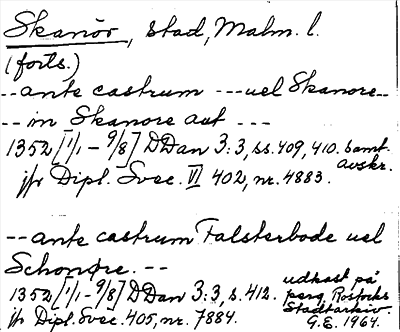 Skanör, stad, Malm. l.
(forts.)
-- ante castrum --- uel Skanore --
-- in Skanore aut ---
1352 [1/1 - 9/8] DDan 3:3, ss. 409, 410. Samt. avskr.
jfr Dipl. Svec. VI 402, nr. 4883.
-- ante castrum Falsterbode uel
Schonøre. --
1352 [1/1 - 9/8] DDan 3:3, s. 412. udkast på
perg. Rostocks
Stadtarkiv.
jfr Dipl. Svec. 405, nr. 7884. G.E. 1964.